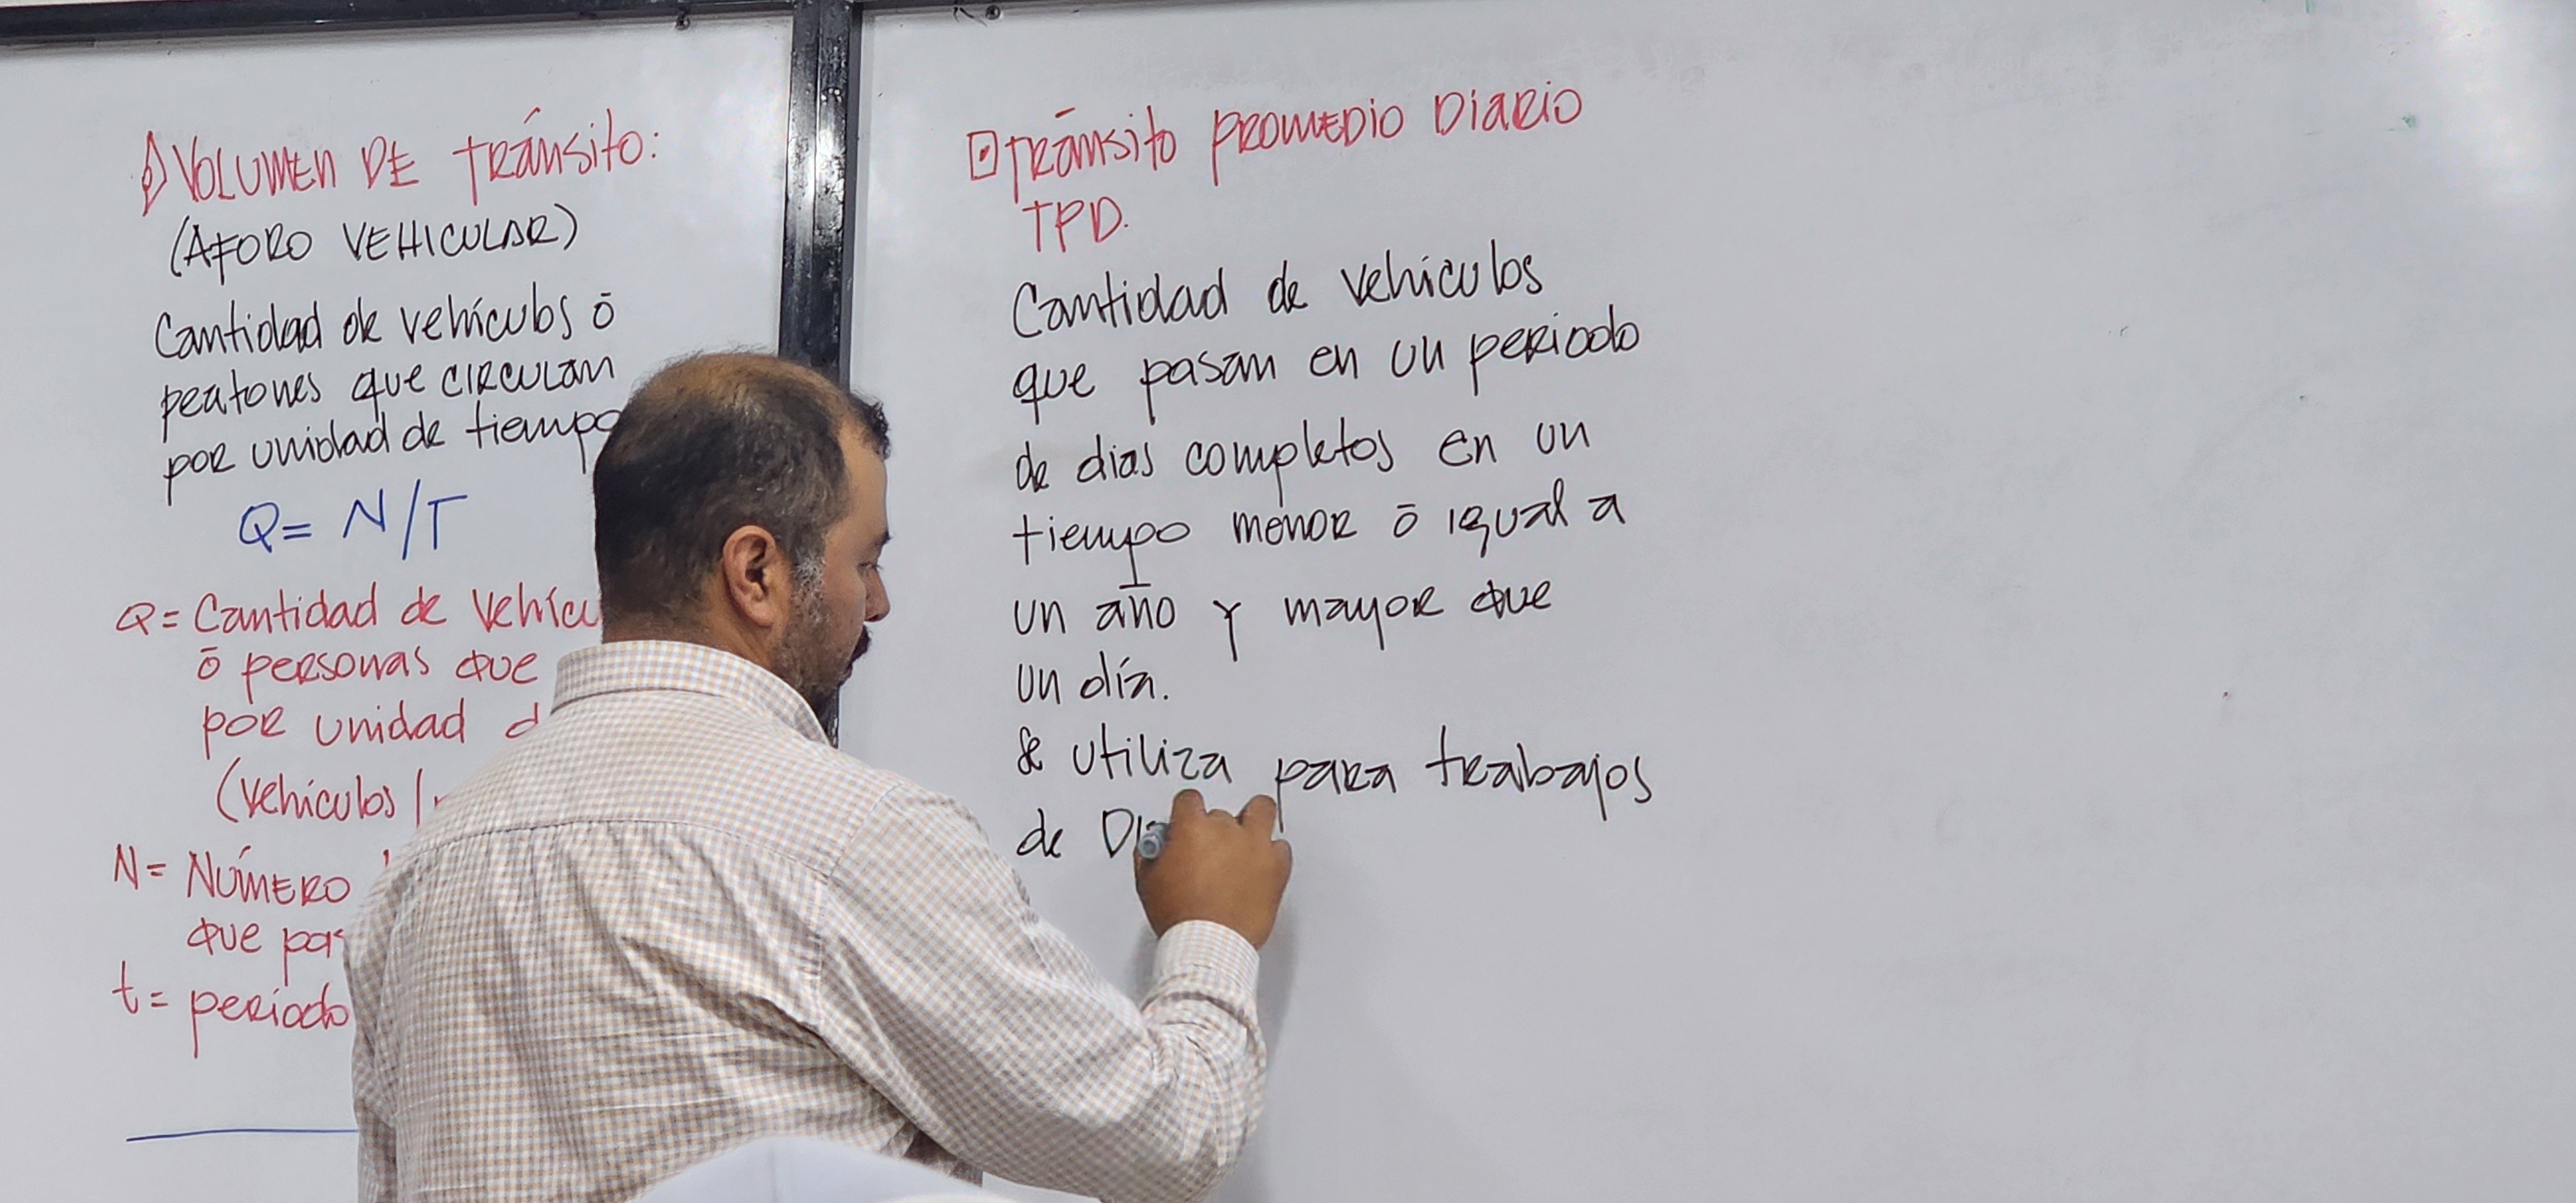 VOLUMEN DE tránsito:
(AFORO VEHICULAR)
Cantidad de vehículos ó
peatones que circulan
por unidad de tiempo
Q= N/T
Q= Cantidad de vehícu
ó personas que
por unidad d
(vehículos /
N= NÚMERO
que pas
t= periodo
tránsito PROMEDIO DIARIO
TPD.
Cantidad de vehículos
que pasan en un periodo
de dias completos en un
tiempo menor ó igual a
un año y mayor que
un día.
Se utiliza para trabajos
de